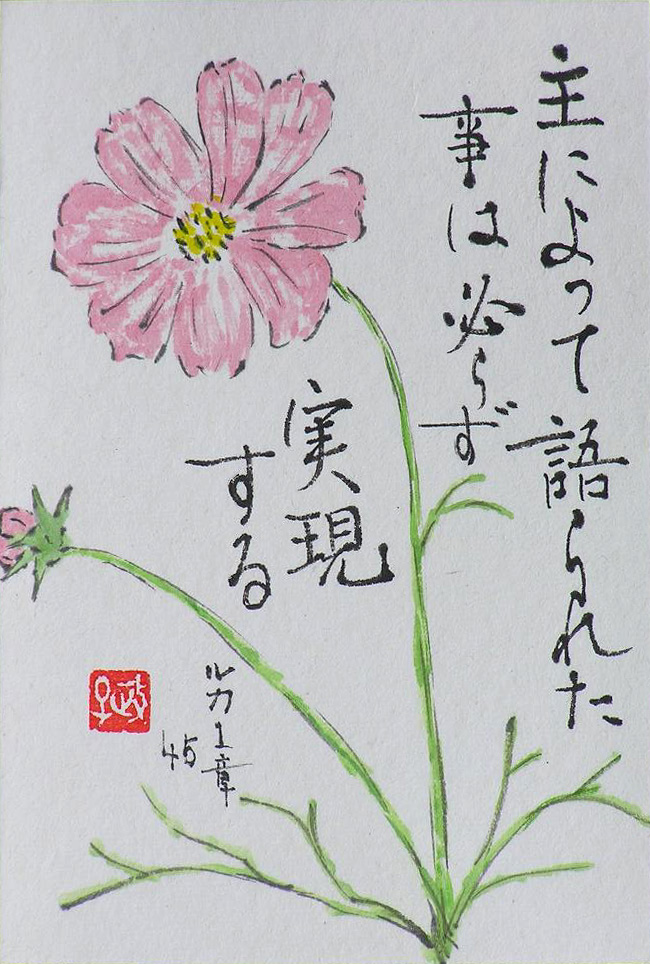 主によって語られた
事は必らず
実現
する
ルカ1章
45